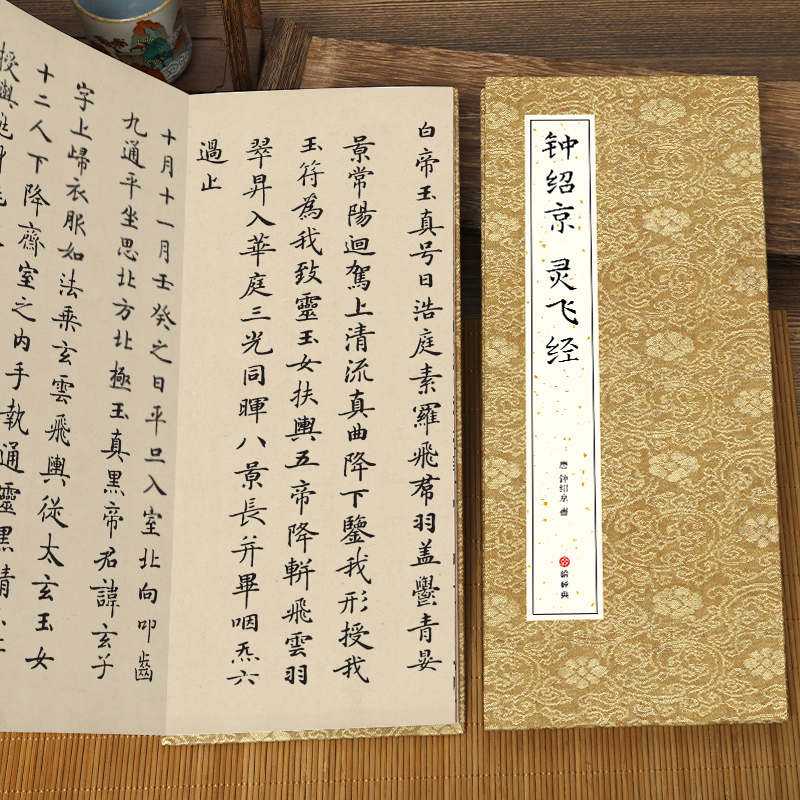 钟绍京 灵飞经
唐 钟绍京 書
翰輕典
白帝玉真号曰浩庭素羅飛帬羽盖鬱青晏
景常陽迴駕上清流真曲降下鑒我形授我
玉符為我致靈玉女扶輿五帝降軿飛雲羽
翠昇入華庭三光同暉八景長并畢咽炁六
過止
十月十一月壬癸之日平旦入室北向叩齒
九通平坐思北方北極玉真黑帝君諱玄子
字上歸衣服如法乘玄雲飛輿從太玄玉女
十二人下降齋室之内手執通靈黑精
授與